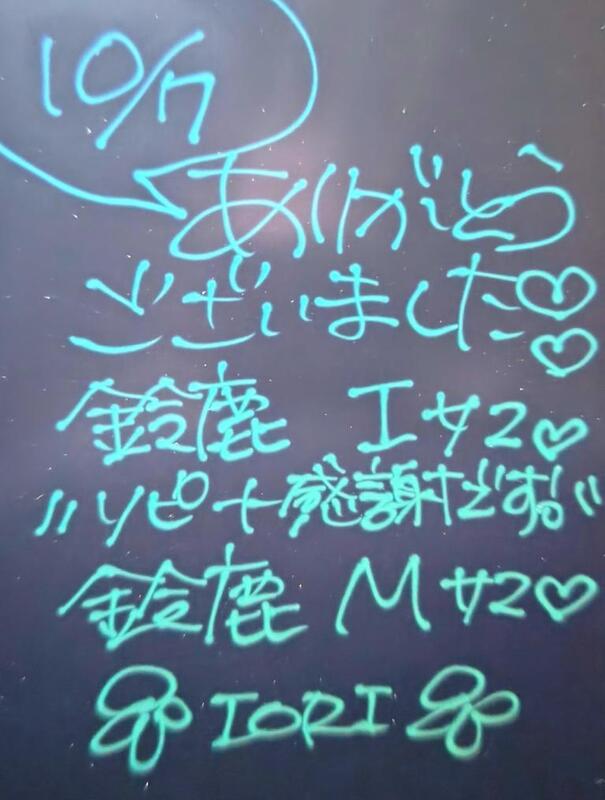 10/7
ありがとう
ございました♡♡
鈴鹿 Iサマ♡
〃リピ十感謝です〃
鈴鹿 Mサマ♡
IORI